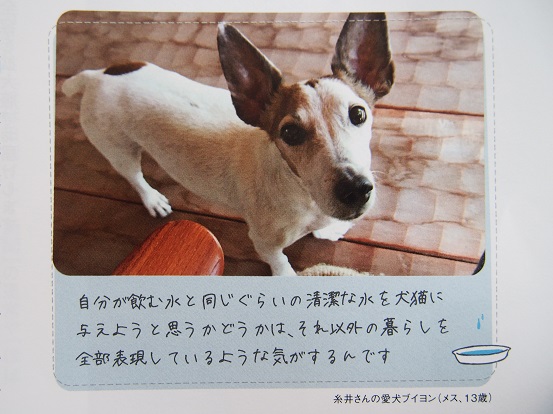 自分が飲む水と同じぐらいの清潔な水を犬猫に
与えようと思うかどうかは、それ以外の暮らしを
全部表現しているような気がするんです
糸井さんの愛犬ブイヨン(メス、13歳)